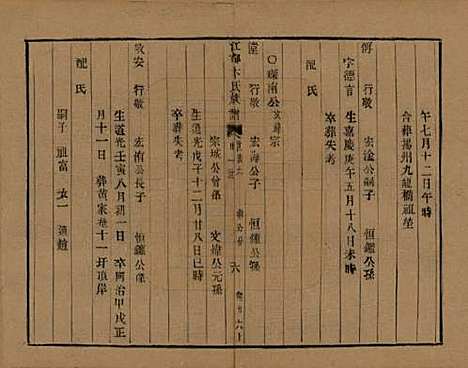 午七月十二日午時
合葬揚州九龍橋祖塋
行敬 宏淦公嗣子 恒鑑公孫
字德言 生嘉慶庚午五月十八日戌時
卒葬失考
配氏
江都卞氏族譜
六
○瑞南公 宗
行敬 宏海公子 恒鐘公孫
宗城公曾孫 文煒公元孫
生道光戊子十二月廿八日巳時
卒葬失考
配氏
敬安 行敬 宏楠公長子 恒鑑公孫
生道光壬寅八月初一日 卒同治甲戌正
月十一日 葬黃家巷十一圩項岸
嗣子 祉富 女一 適趙